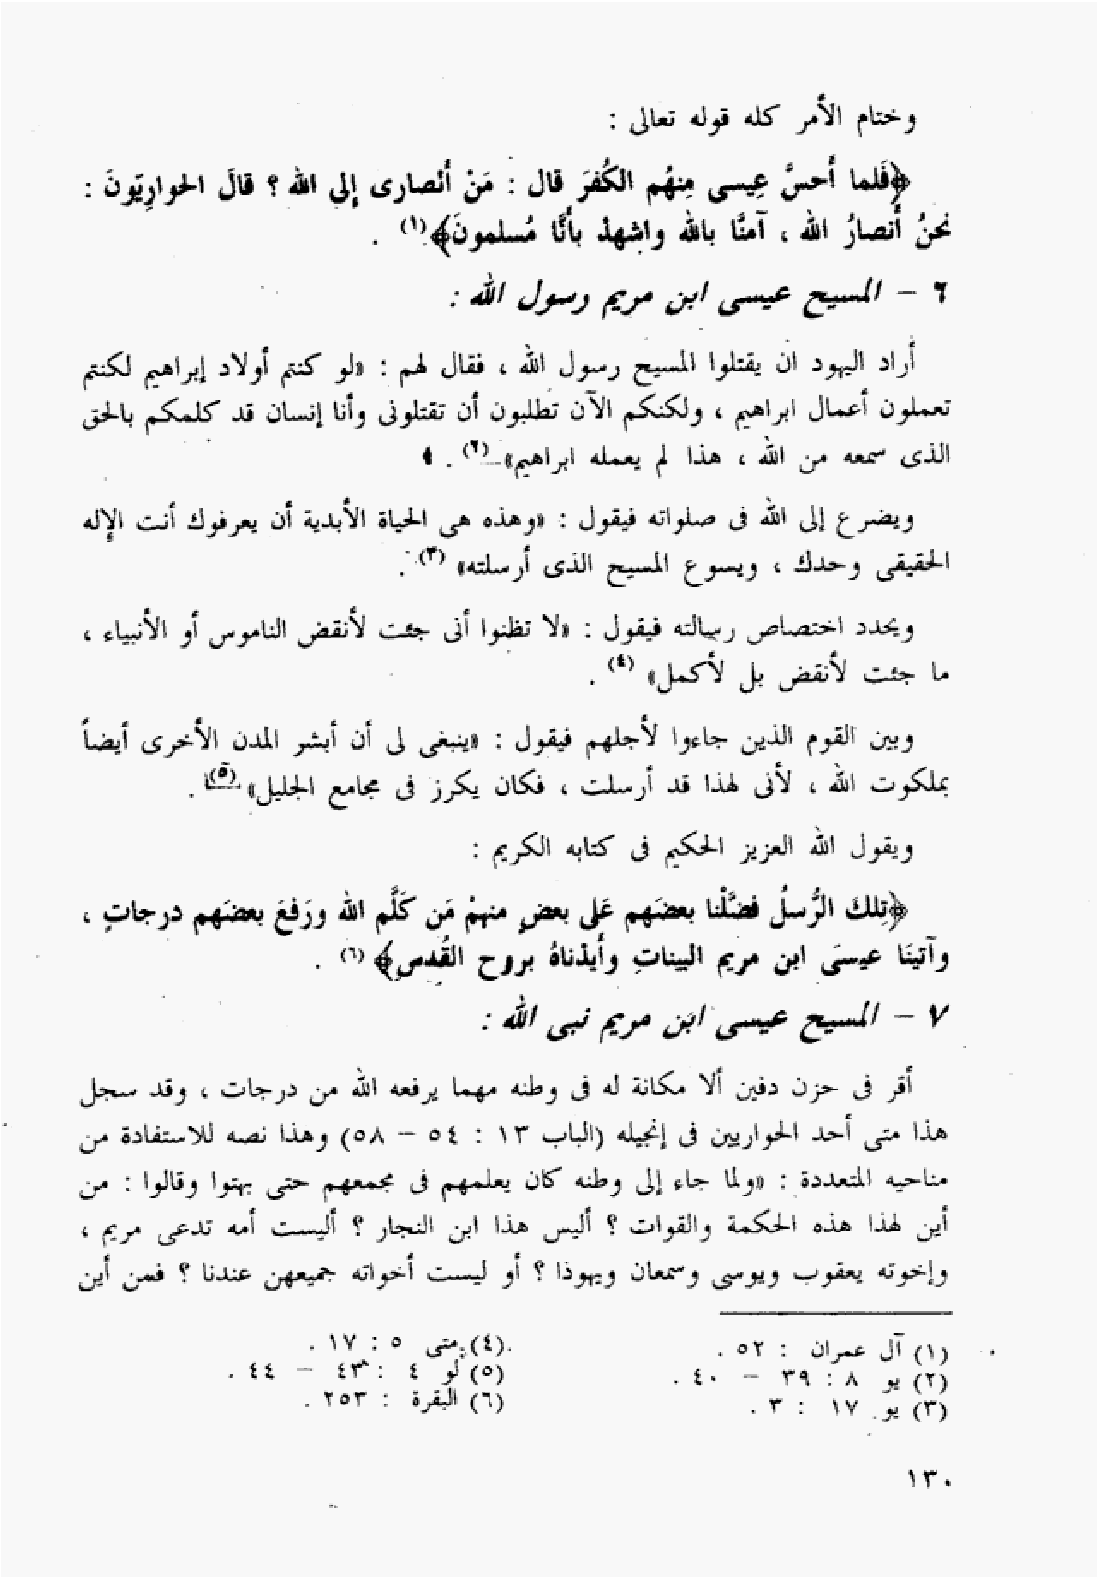 وختام الأمر كله قوله تعالى :
﴿فَلما أَحسَّ عِيسى مِنهُم الكُفرَ قال : مَنْ أَنصارى إلى الله ؟ قالَ الحوارِيّونَ :
نحنُ أَنصارُ الله ، آمنَّا بالله واشهدْ بأَنَّا مُسلمونَ﴾(١) .
٦ – المسيح عيسى ابن مريم رسول الله :
أراد اليهود ان يقتلوا المسيح رسول الله ، فقال لهم : «لو كنتم أولاد إبراهيم لكنتم
تعملون أعمال ابراهيم ، ولكنكم الآن تطلبون أن تقتلونى وأنا إنسان قد كلمكم بالحق
الذى سمعه من الله ، هذا لم يعمله ابراهيم»(٢) .
ويضرع إلى الله فى صلواته فيقول : «وهذه هى الحياة الأبدية أن يعرفوك أنت الإله
الحقيقى وحدك ، ويسوع المسيح الذى أرسلته»(٣) .
ويحدد اختصاص رسالته فيقول : «لا تظنوا أنى جئت لأنقض الناموس أو الأنبياء ،
ما جئت لأنقض بل لأكمل»(٤) .
وبين القوم الذين جاءوا لأجلهم فيقول : «ينبغى لى أن أبشر المدن الأخرى أيضاً
بملكوت الله ، لأنى لهذا قد أرسلت ، فكان يكرز فى مجامع الجليل»(٥) .
ويقول الله العزيز الحكيم فى كتابه الكريم :
﴿تِلكَ الرُّسلُ فضَّلْنا بعضَهم عَلى بعضٍ منهمْ مَن كَلَّم الله ورَفعَ بعضَهم درجاتٍ ،
وآتينَا عيسَى ابن مريم البيناتِ وأَيدْناهُ بروح القُدس﴾(٦) .
٧ – المسيح عيسى ابن مريم نبى الله :
أقر فى حزن دفين ألا مكانة له فى وطنه مهما يرفعه الله من درجات ، وقد سجل
هذا متى أحد الحواريين فى إنجيله (الباب ١٣ : ٥٤ – ٥٨) وهذا نصه للاستفادة من
مناحيه المتعددة : «ولما جاء إلى وطنه كان يعلمهم فى مجمعهم حتى بهتوا وقالوا : من
أين لهذا هذه الحكمة والقوات ؟ أليس هذا ابن النجار ؟ أليست أمه تدعى مريم ،
وإخوته يعقوب ويوسى وسمعان ويهوذا ؟ أو ليست أخواته جميعهن عندنا ؟ فمن أين
(١) آل عمران : ٥٢ .
(٢) يو ٨ : ٣٩ – ٤٠ .
(٣) يو ١٧ : ٣ .
(٤) متى ٥ : ١٧ .
(٥) لو ٤ : ٤٣ – ٤٤ .
(٦) البقرة : ٢٥٣ .
١٣٠